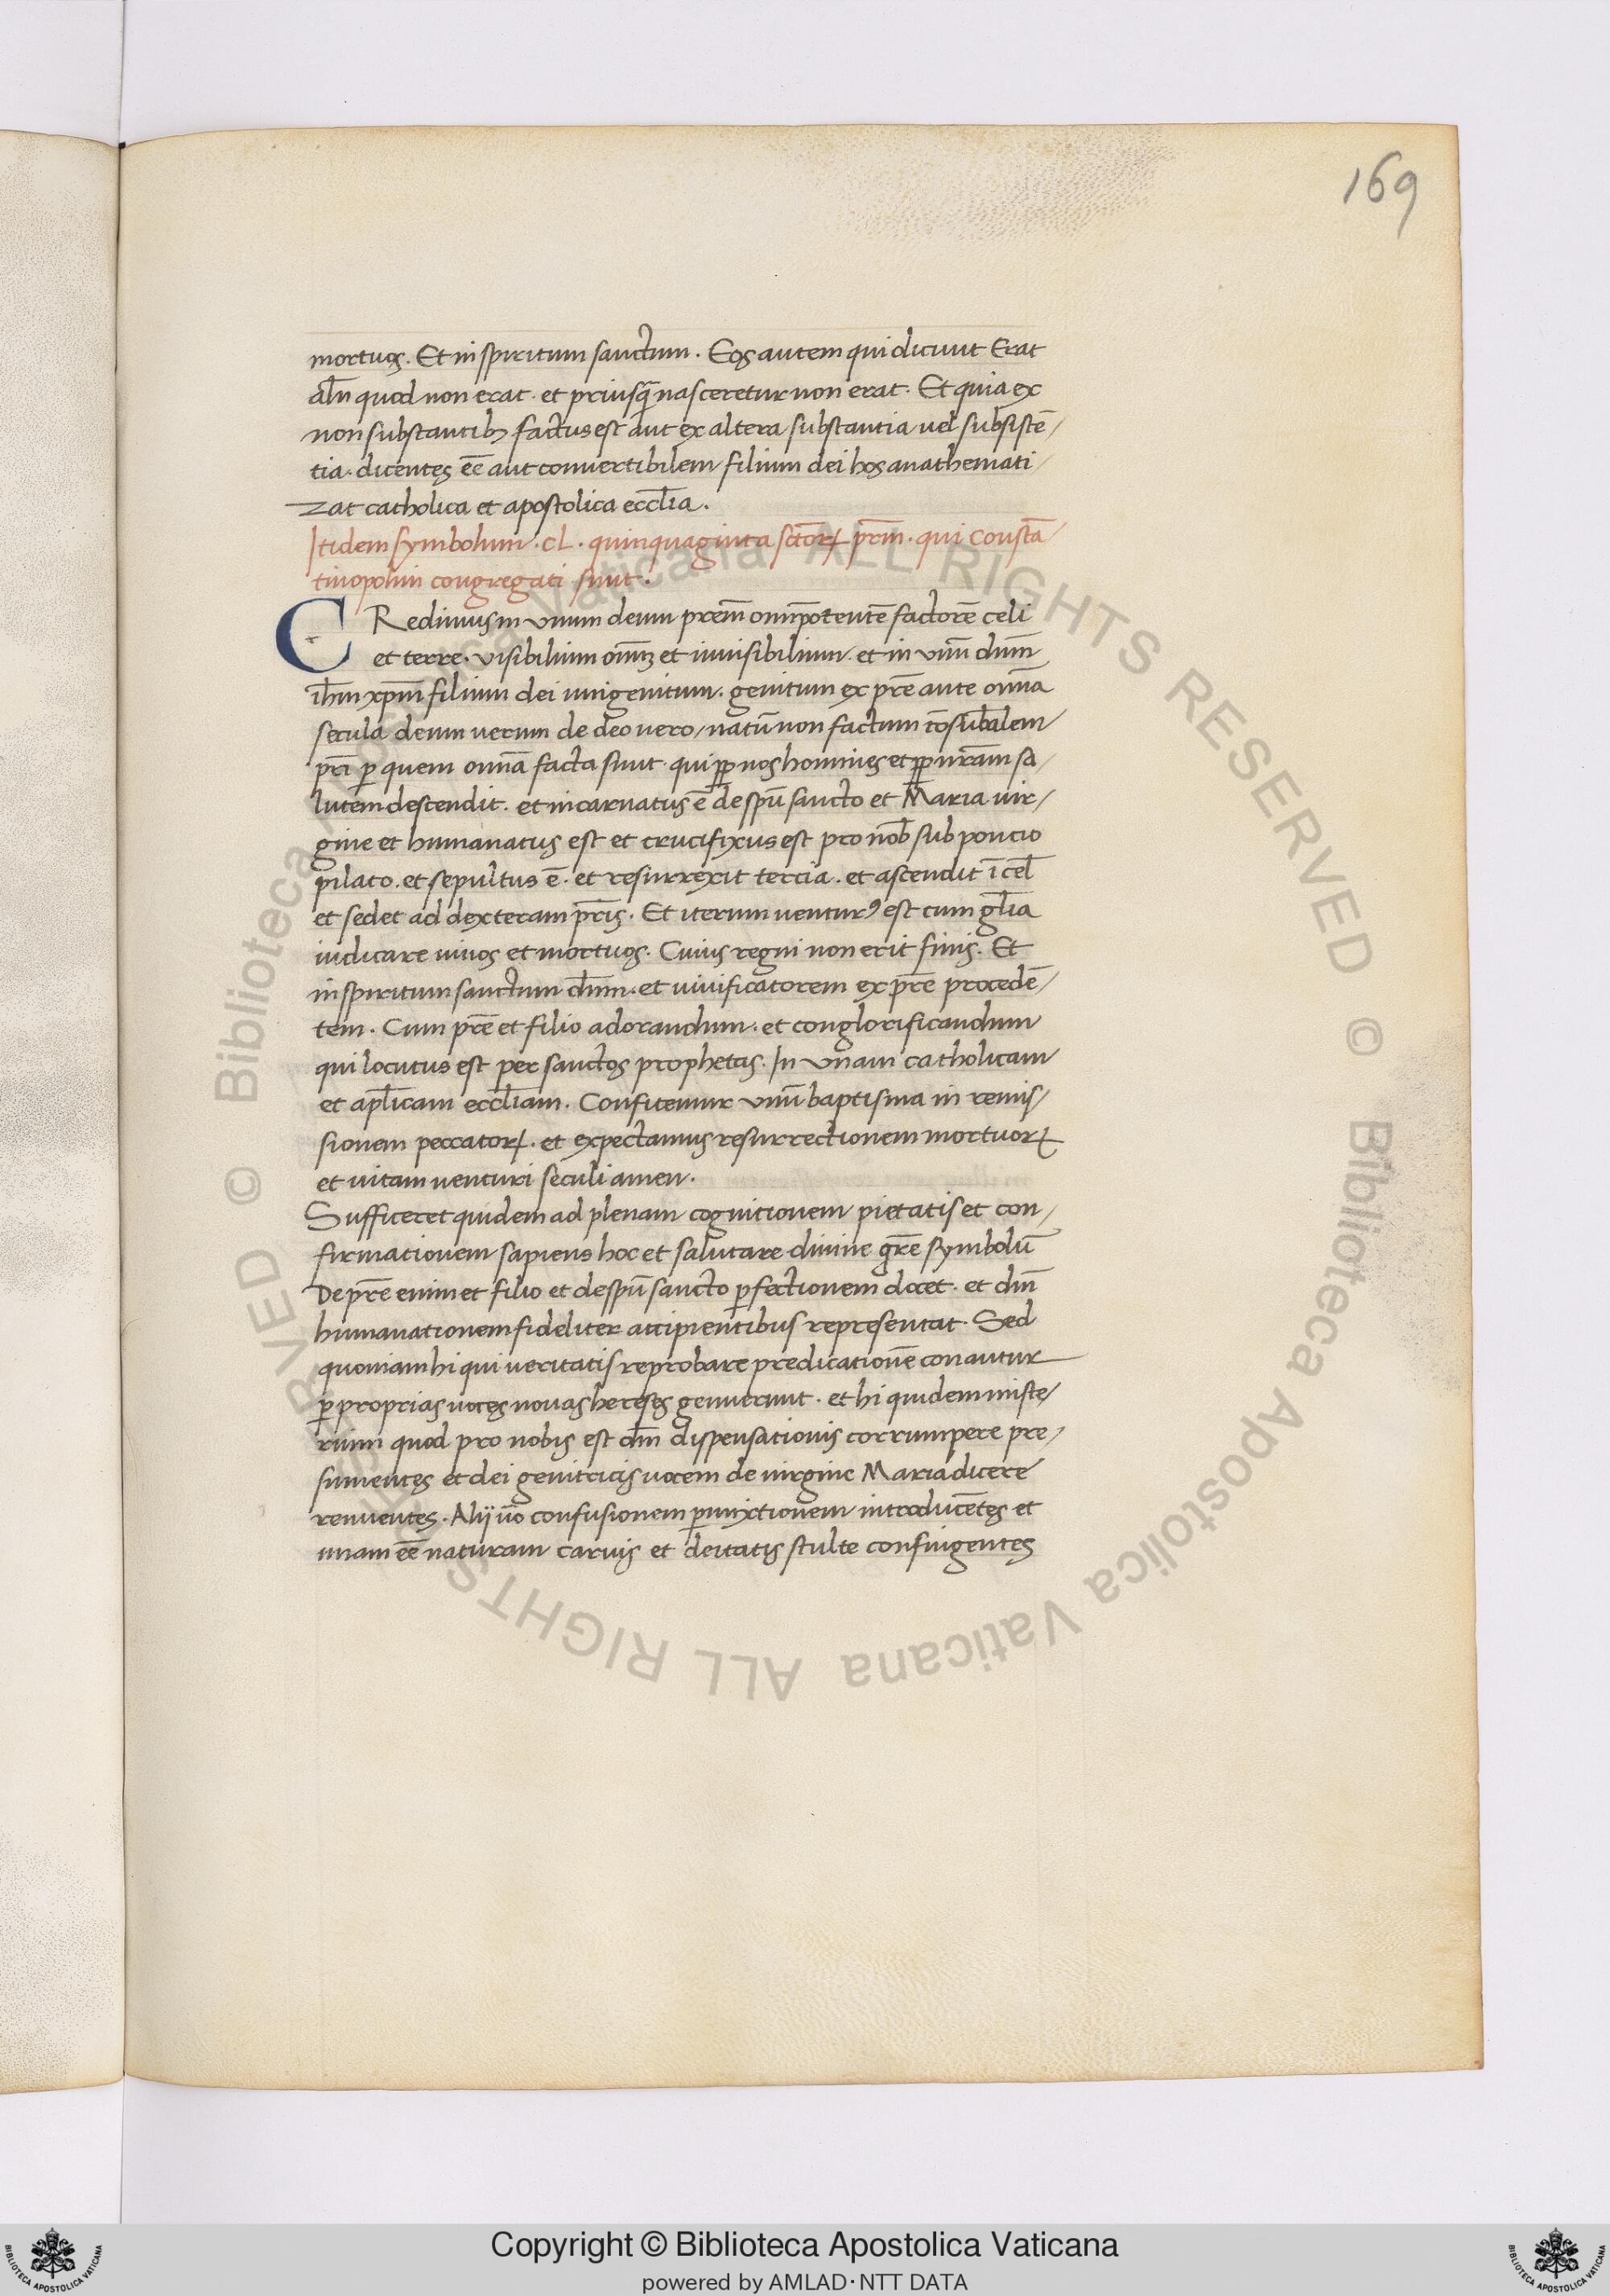 169
mortuos. Et in spiritum sanctum. Eos autem qui dicunt Erat
alῑn quod non erat. et priusq̄ nasceretur non erat. Et quia ex
non substantibꝫ factus est aut ex altera substantia uel subsistē/
tia. dicentes eē aut convertibilem filium dei hos anathemati/
zat catholica et apostolica eccl̄ia.
Itidem symbolum .cL. quinquaginta sc̄torꝝ pr̄m. qui Constā/
tinopolim congregati sunt.
CRedimus in vnum deum pr̄em omīpotentē factorē celi
et terre. visibilium om̄iuꝫ et inuisibilium. et in vnū dn̄m
ih̄m xp̄m filium dei unigenitum. genitum ex pr̄e ante om̄a
secula deum uerum de deo uero/ natū non factum cōsub̄alem
pr̄i ꝑ quem om̄a facta sunt. qui ꝓp nos homines et ꝓp nr̄am sa/
lutem descendit. et incarnatus ē de spū sancto et Maria uir/
gine et humanatus est et crucifixus est pro nob̄ sub poncio
pilato. et sepultus ē. et resurrexit tercia. et ascendit ī cel̄
et sedet ad dexteram pr̄is. Et iterum ventur⁹ est cum gl̄ia
iudicare uiuos et mortuos. Cuius regni non erit finis. Et
in spiritum sanctum dn̄m. et uiuificatorem ex pr̄e procedē/
tem. Cum pr̄e et filio adorandum. et conglorificandum
qui locutus est per sanctos prophetas. In vnam catholicam
et apl̄icam eccl̄iam. Confitemur vnū baptisma in remis/
sionem peccatorꝝ. et expectamus resurrectionem mortuorꝝ
et uitam uenturi seculi amen.
Sufficeret quidem ad plenam cognitionem pietatis et con/
firmationem sapiens hoc et salutare diuine gr̄e symbolū
De pr̄e enim et filio et de spū sancto ꝑfectionem docet. et dn̄i
humanationem fideliter accipientibus representat. Sed
quoniam hi qui ueritatis reprobare predicationē conantur
ꝑ proprias uoces nouas hereses genuerunt. et hi quidem miste/
rium quod pro nobis est dn̄i dispensationis corrumpere pre/
sumentes et dei genitricis uocem de uirgine Maria dicere
renuentes. Alij ūo confusionem ꝑmixtionem introducētes et
unam eē naturam carnis et deitatis stulte confingentes
Copyright © Biblioteca Apostolica Vaticana
powered by AMLAD·NTT DATA
© Biblioteca Apostolica Vaticana ALL RIGHTS RESERVED © Biblioteca Apostolica Vaticana ALL RIGHTS RESERVED
BIBLIOTECA APOSTOLICA VATICANA
BIBLIOTECA APOSTOLICA VATICANA